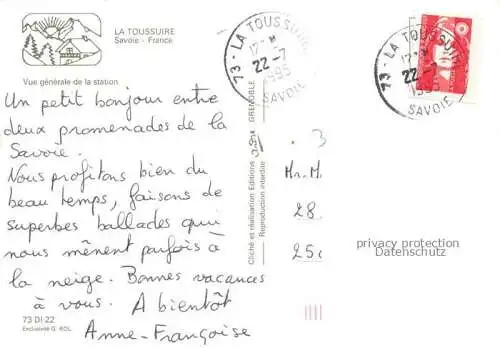 LA TOUSSUIRE
Savoie - France
Vue générale de la station
Un petit bonjour entre
deux promenades de la
Savoie.
Nous profitons bien du
beau temps, faisons de
superbes ballades qui
nous mênent parfois à
la neige. Bonnes vacances
à vous. A bientôt
Anne-Françoise
73 DI 22
Exclusivité G. ROL
GRENOBLE
Cliché et réalisation Editions
Reproduction interdite
73 - LA TOUSSUIRE
17 H
22-7
1995
SAVOIE
73 - LA TOUSSUIRE
22-7
SAVOIE
3
Mr. M.
28
25
privacy protection
Datenschutz